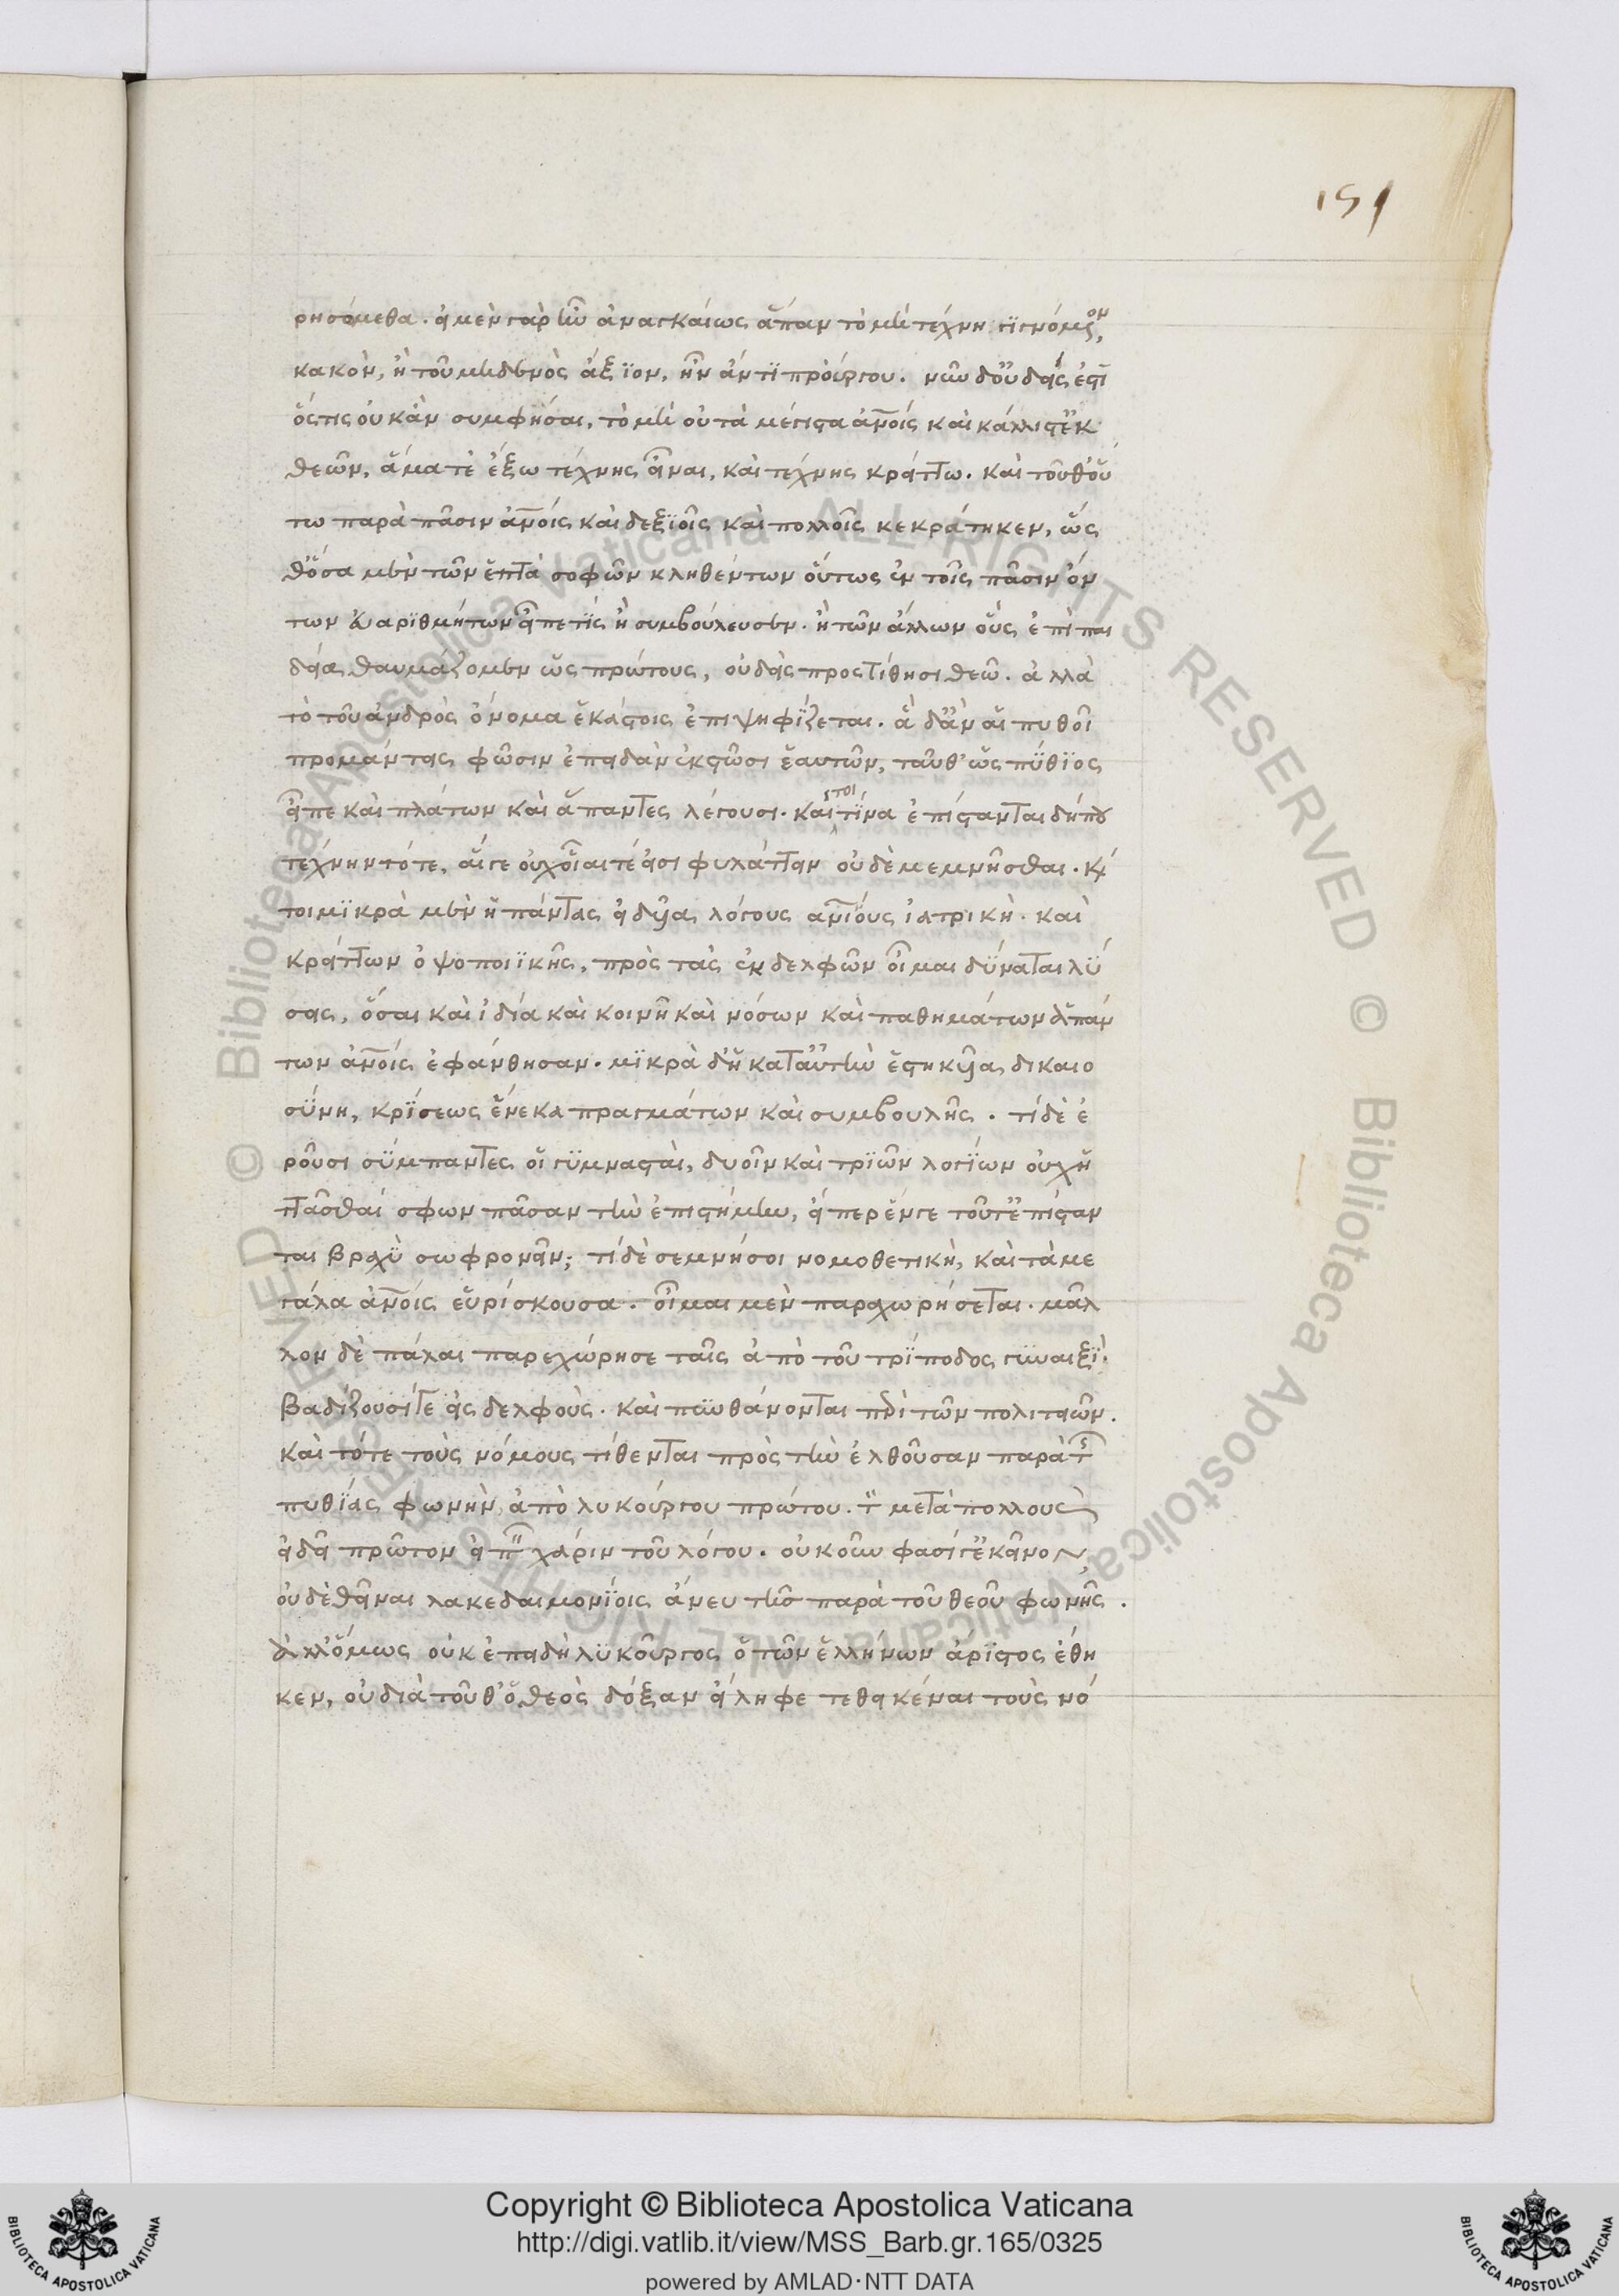 151
ρησόμεθα. εἰ μὲν γὰρ ἦν ἀναγκαίως ἅπαν τὸ μὴ τέχνῃ γιγνόμενον,
κακὸν, ἢ τοῦ μηδενὸς ἄξϊον, ἦν ἄν τϊ προὔργου. νῦν δ' οὐδείς ἐστὶ
ὅςτις οὐκ ἂν συμφήσαι, τὸ μὴ οὐ τὰ μέγιστα ἀνοῖς καὶ κάλλιστ' ἐκ
θεῶν, ἅμα τὲ ἔξω τέχνης εἶναι, καὶ τέχνης κρείττω. καὶ τοῦθ' οὕ
τω παρὰ πᾶσιν ἀνοῖς καὶ δεξϊοῖς καὶ πολλοῖς κεκράτηκεν, ὥς
θ' ὅσα μὲν τῶν ἑπτὰ σοφῶν κληθέντων οὕτως ἐν τοῖς πᾶσιν ὄν
των εὐαρϊθμήτων εἶπέ τϊς ἢ συμβούλευσεν. ἢ τῶν ἄλλων οὓς ἐπὶ παι
δείας θαυμάζομεν ὡς πρώτους, οὐδεὶς προςτίθησι θεῶ. ἀλλὰ
τὸ τοῦ ἀνδρὸς ὄνομα ἑκάστοις ἐπιψηφΐζεται. ἃ δ' ἂν αἱ πυθοῖ
προμάντεις φῶσιν ἐπειδὰν ἐκστῶσι ἑαυτῶν, ταῦθ' ὡς πύθϊος
εἶπε καὶ πλάτων καὶ ἅπαντες λέγουσι. καίτοι τίνα ἐπίστανται δήπου
τέχνην τότε, αἵγε οὐχ' οἷαι τέ εἰσι φυλάττειν οὐδὲ μεμνῆσθαι. καί
τοι μϊκρὰ μὲν ἡ πάντας εἰδυῖα λόγους ἀνίους ἰατρικὴ. καὶ
κρείττων ὀψοποιϊκῆς, πρὸς τὰς ἐκ δελφῶν οἶμαι δύναται λύ
σεις, ὅσαι καὶ ἰδία καὶ κοινῆ καὶ νόσων καὶ παθημάτων ἁπάν
των ἀνοῖς ἐφάνθησαν. μϊκρὰ δ' ἡ κατ' αὐτὴν ἑστηκυῖα, δικαιο
σύνη, κρίσεως ἕνεκα πραγμάτων καὶ συμβουλῆς. τί δὲ ἐ
ροῦσι σύμπαντες οἱ γυμνασταὶ, δυοῖν καὶ τρϊῶν λογίων οὐχ ἡ
ττᾶσθαί σφων πᾶσαν τὴν ἐπιστήμην, εἴπερ ἕν γε τοῦτ' ἐπίσταν
ται βραχὺ σωφρονεῖν; τί δὲ σεμνὴ σοι νομοθετικὴ, καὶ τὰ με
γάλα ἀνοῖς εὑρίσκουσα. οἶμαι μὲν παραχωρήσεται. μᾶλ
λον δὲ πάλαι παρεχώρησε ταῖς ἀπὸ τοῦ τρΐποδος γυναιξὶ.
βαδίζουσί τε εἰς δελφοὺς. καὶ πυνθάνονται περὶ τῶν πολιτειῶν.
καὶ τότε τοὺς νόμους τίθενται πρὸς τὴν ἐλθοῦσαν παρὰ τῆς
πυθϊας φωνὴν ἀπὸ λυκούργου πρώτου. τὸν μετὰ πολλοὺς
εἰ δεῖ πρῶτον εἰπεῖν χάριν τοῦ λόγου. οὐκοῦν φασί γ' ἐκεῖνον
οὐδὲ θεῖναι λακεδαιμονίοις ἄνευ τῆς παρὰ τοῦ θεοῦ φωνῆς.
ἀλλ' ὅμως οὐκ ἐπειδὴ λυκοῦργος ὁ τῶν ἑλλήνων ἄριστος ἔθη
κεν, οὐ διὰ τοῦθ' ὁ θεὸς δόξαν εἴληφε τεθεικέναι τοὺς νό
Copyright © Biblioteca Apostolica Vaticana
http://digi.vatlib.it/view/MSS_Barb.gr.165/0325
powered by AMLAD·NTT DATA
BIBLIOTECA APOSTOLICA VATICANA
BIBLIOTECA APOSTOLICA VATICANA
© Biblioteca Apostolica Vaticana ALL RIGHTS RESERVED
© Biblioteca Apostolica Vaticana ALL RIGHTS RESERVED